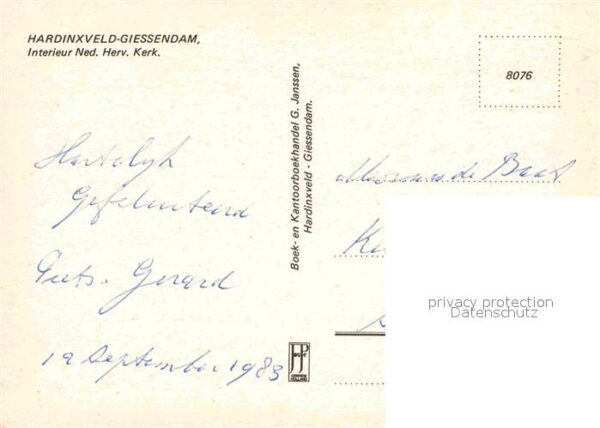 HARDINXVELD-GIESSENDAM,
Interieur Ned. Herv. Kerk.
8076
Boek- en Kantoorboekhandel G. Janssen,
Hardinxveld - Giessendam.
Hartelijk
Gefeliciteerd
Gerard
12 September 1983
de Baat
privacy protection
Datenschutz